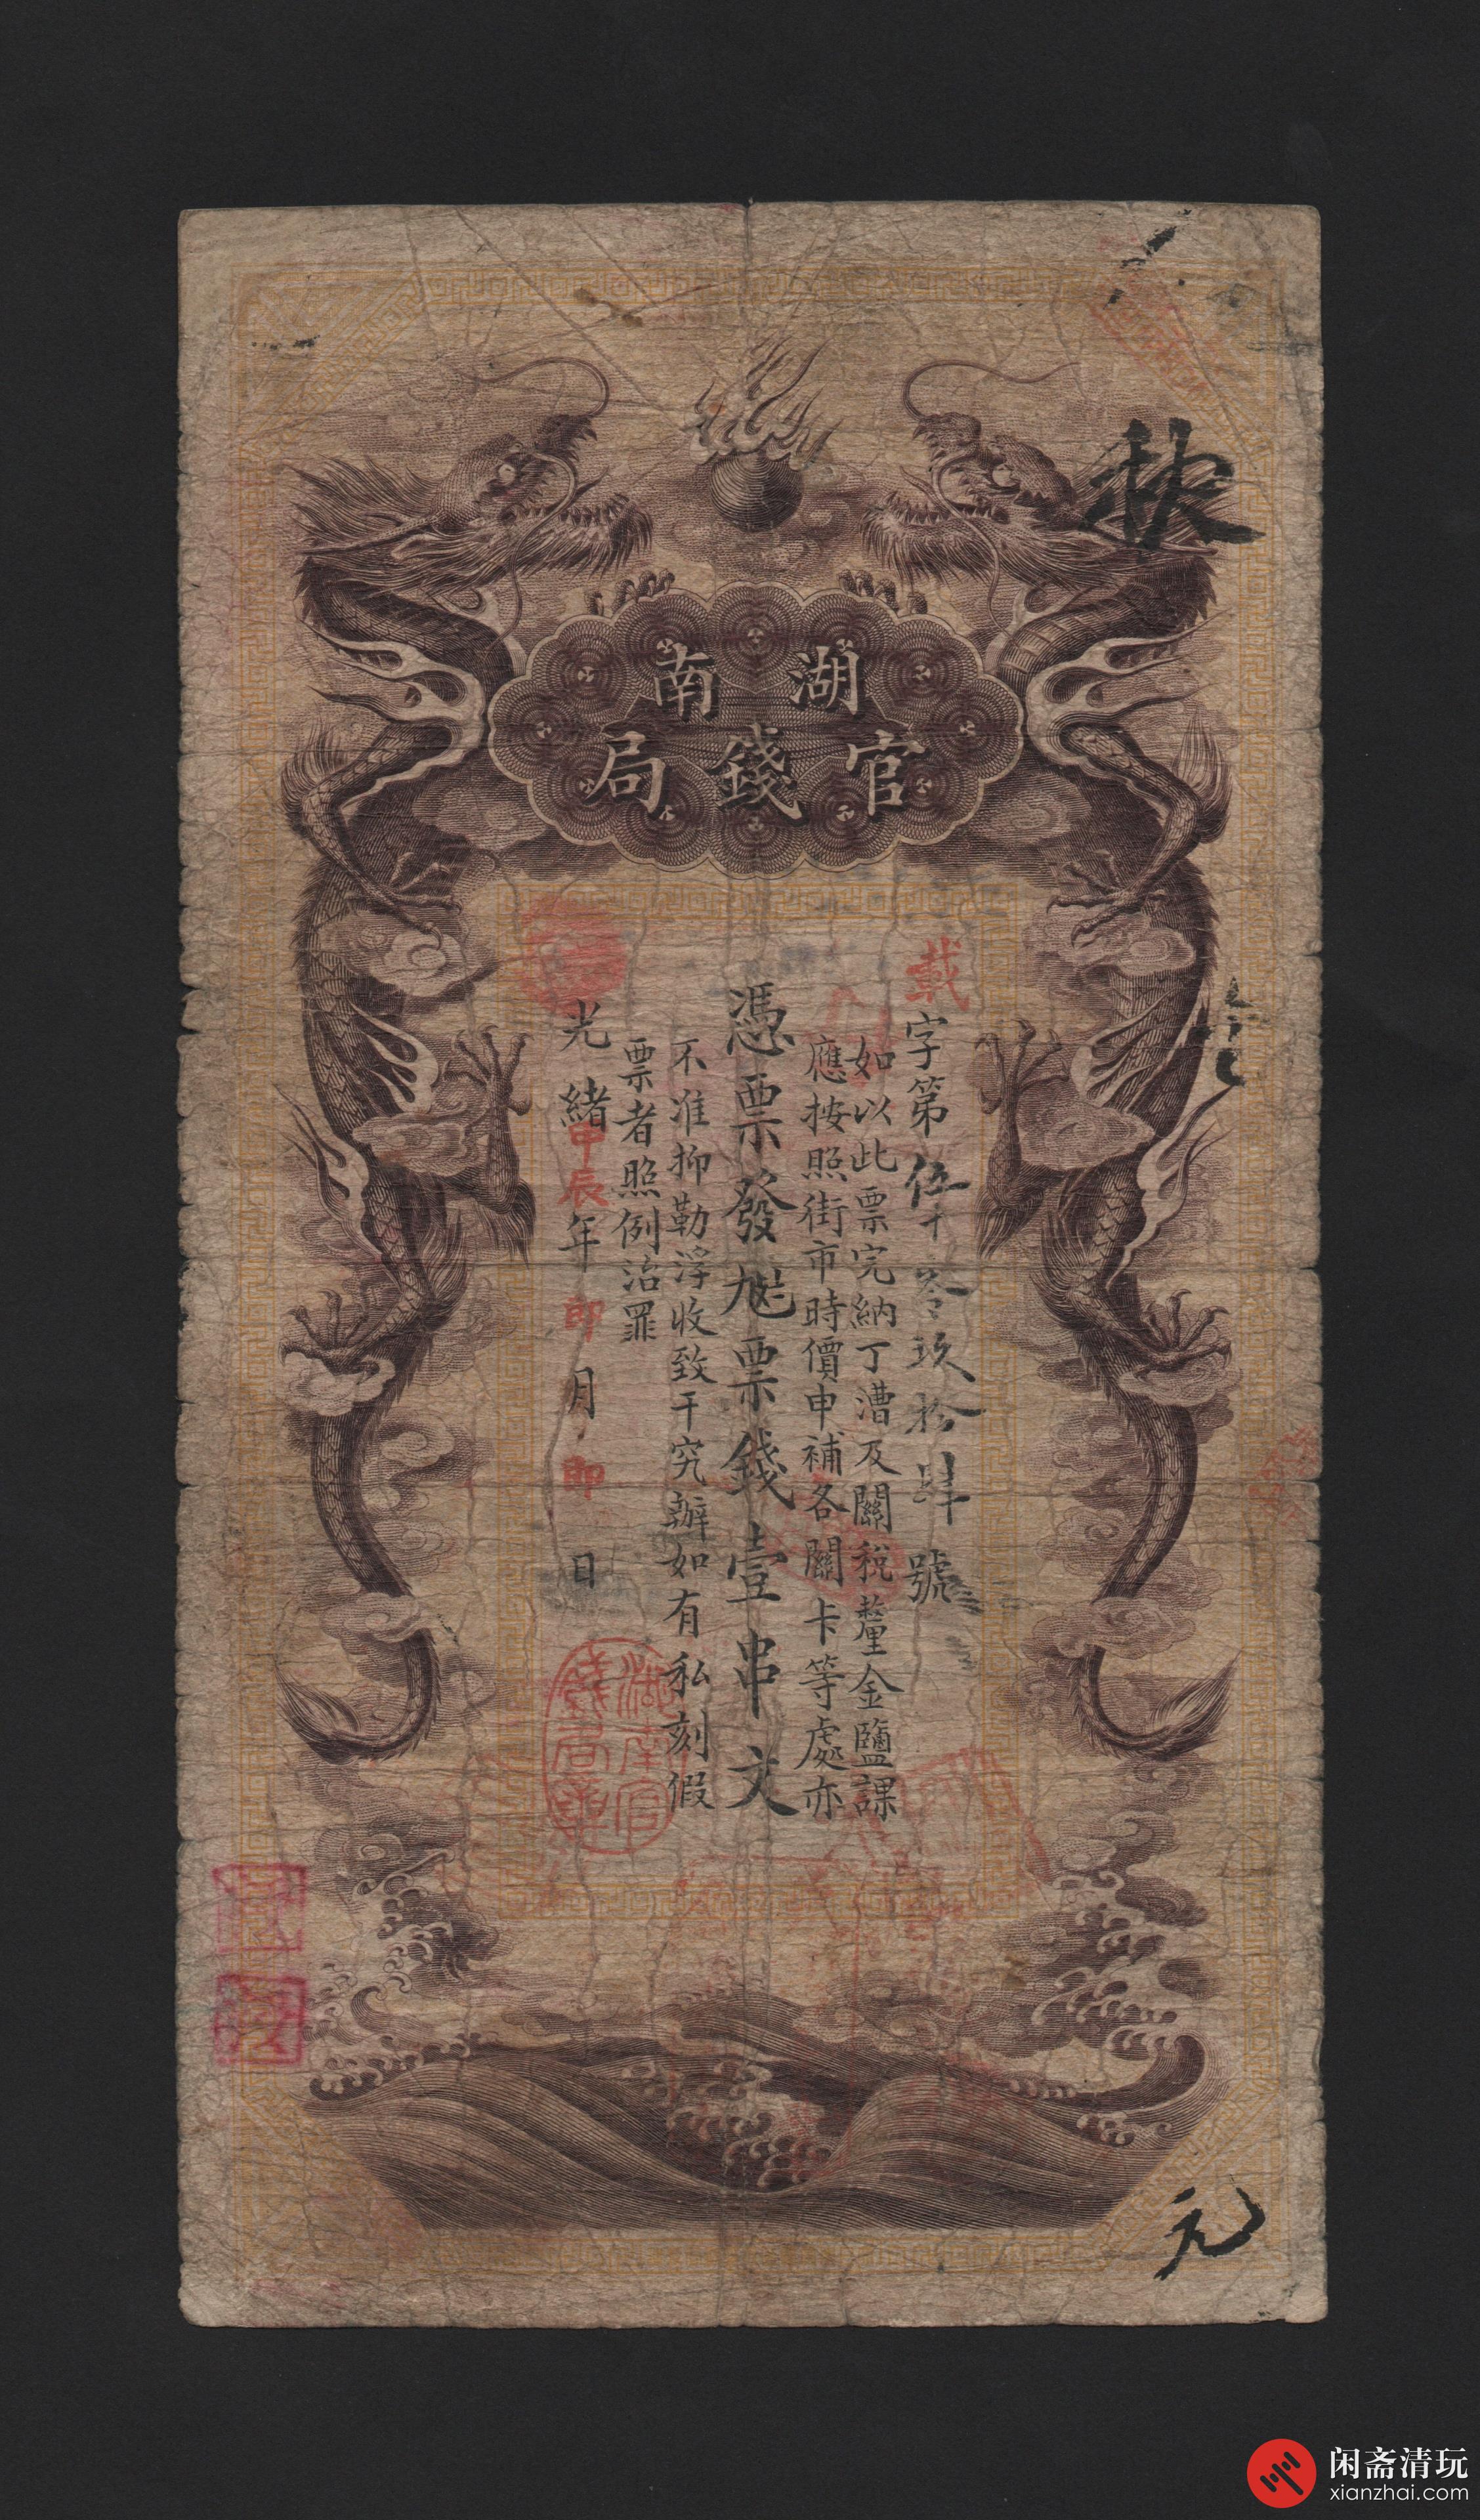 湖南
官錢局
秋
載字第伍千零玖拾肆號
如以此票完納丁漕及關稅釐金鹽課
應按照街市時價申補各關卡等處亦
憑票發 票錢壹串文
不准抑勒浮收致干究辦如有私刻假
票者照例治罪
光緒甲辰年 月 日
湖南官
錢局章
元
闲斋清玩
xianzhai.com